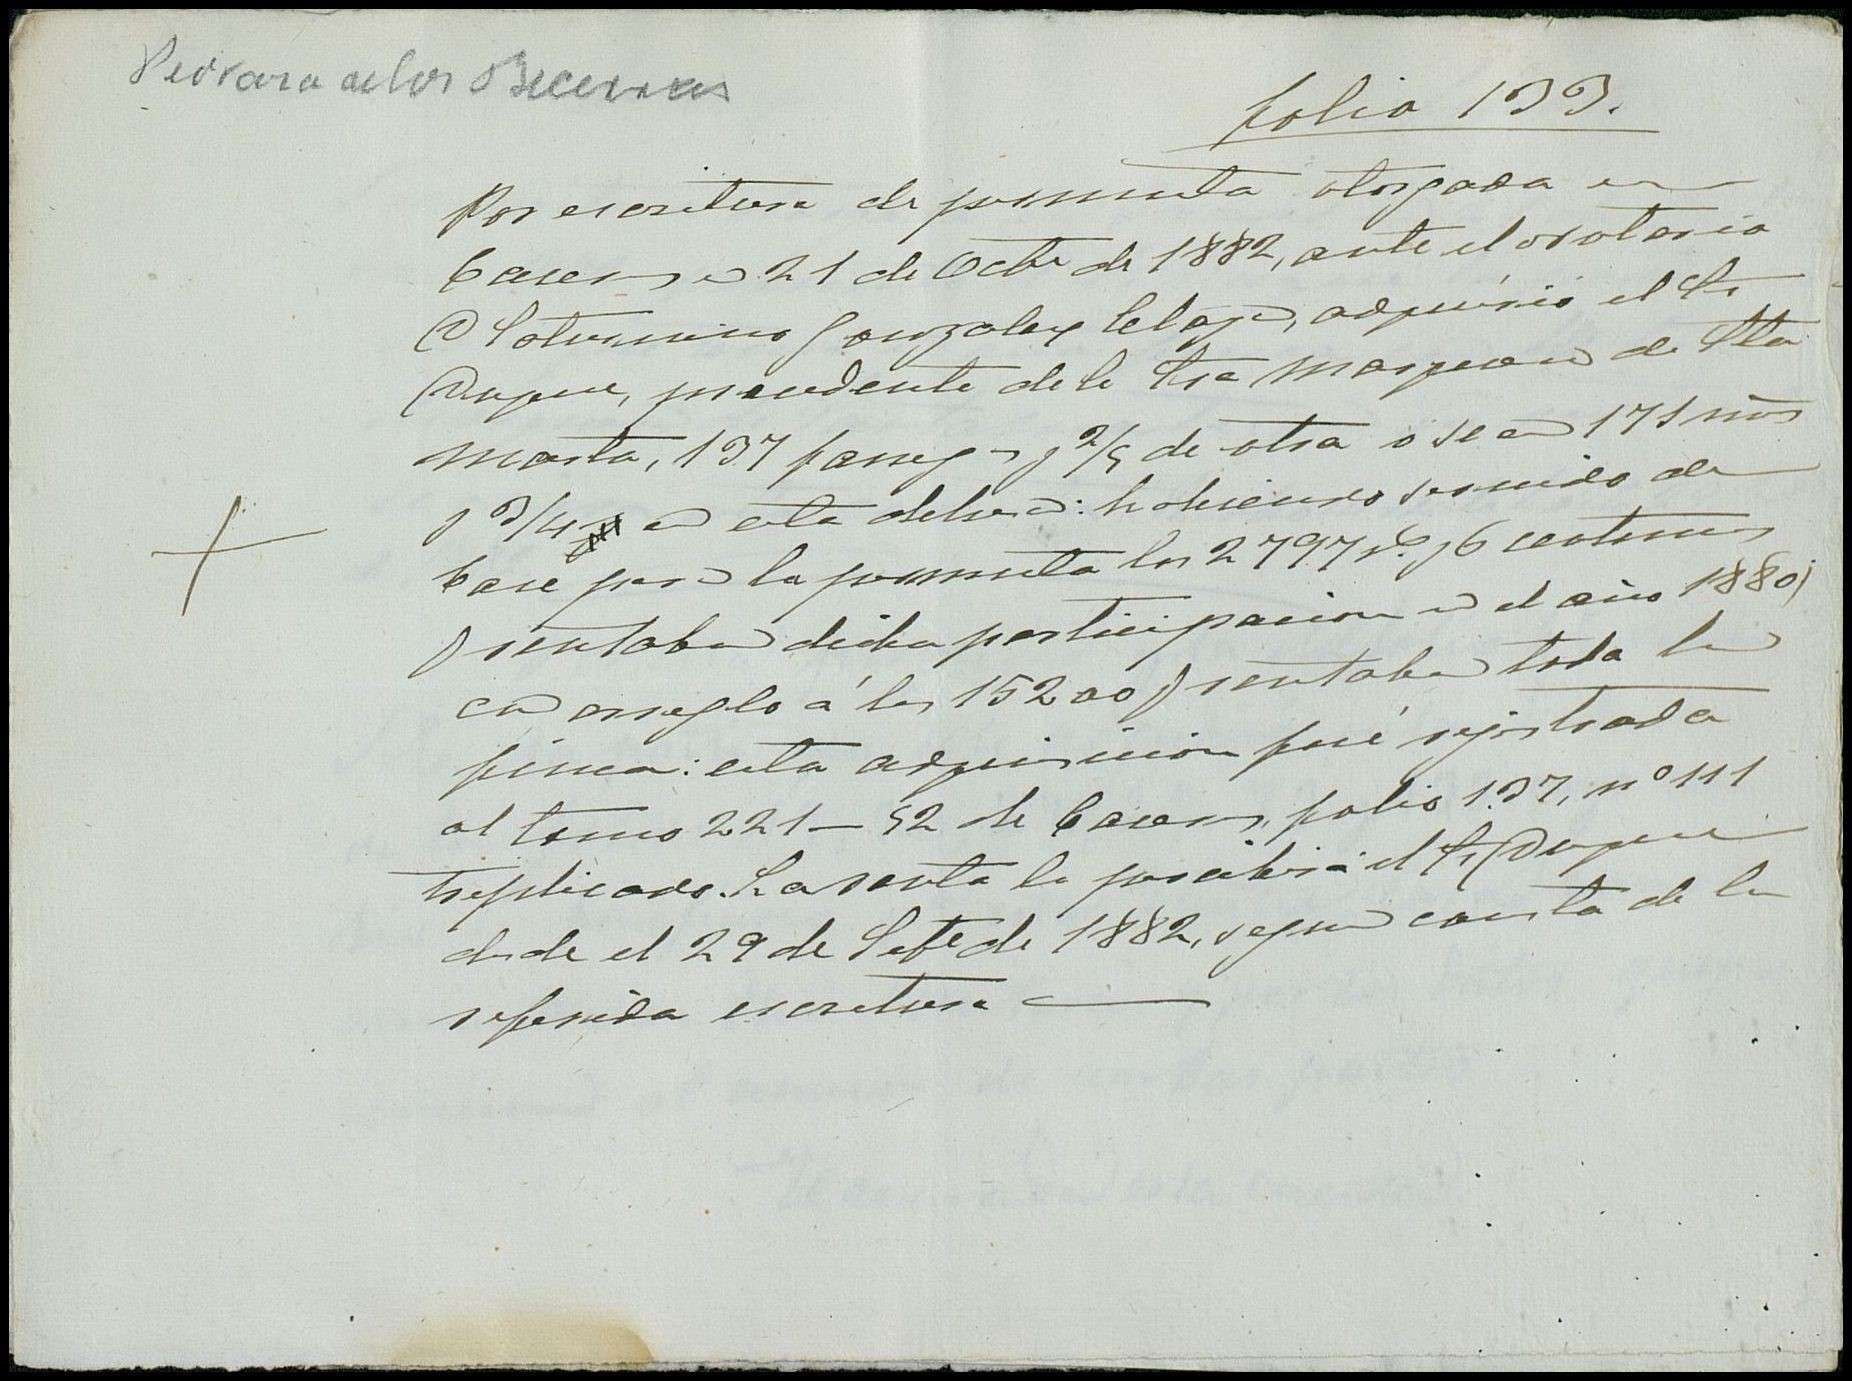 Pedraza de los Becerros
folio 133.
Por escritura de permuta otorgada en
Caceres a 21 de Octe de 1882, ante el notario
D Saturnino Gonzalez Celaya, adquirió el Sr
Duque, procedente de la Sra Marquesa de Sta
Marta, 137 fanegs y 2/5 de otra o sean 171 mrs
y 3/4 en esta dehesa: habiendo servido de
base para la permuta los 2797 rs y 6 centimos
q rentaba dicha participacion en el año 1880,
con arreglo á los 15200 q rentaba toda la
finca: esta adquisicion fué rejistrada
al tomo 221 - 52 de Caceres, folio 137, nº 111
treplicado. La renta la percibirá el Sr Duque
desde el 29 de Sete de 1882, segun consta de la
referida escritura